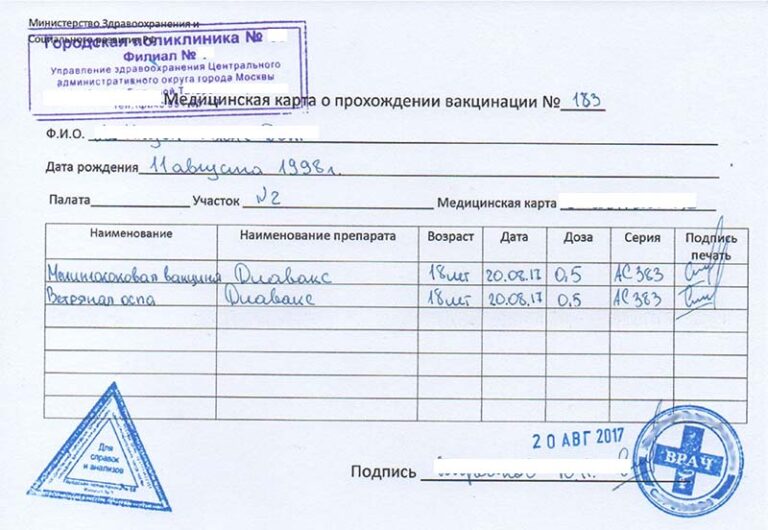 Министерство Здравоохранения и
Социального развития РФ
Городская поликлиника №
Филиал №
Управление здравоохранения Центрального
административного округа города Москвы
Медицинская карта о прохождении вакцинации № 183
Ф.И.О.
Дата рождения 11 августа 1998г.
Палата Участок №2 Медицинская карта
Наименование Наименование препарата Возраст Дата Доза Серия Подпись печать
Менингококовая вакцина Диавакс 18 лет 20.08.17 0,5 АС 383
Ветряная оспа Диавакс 18 лет 20.08.17 0,5 АС 383
Для
справок
и анализов
20 АВГ 2017
Подпись
ВРАЧ